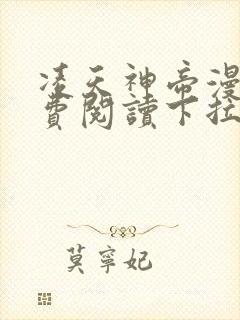 凌天神帝漫
費閱讀下拉
莫寧妃